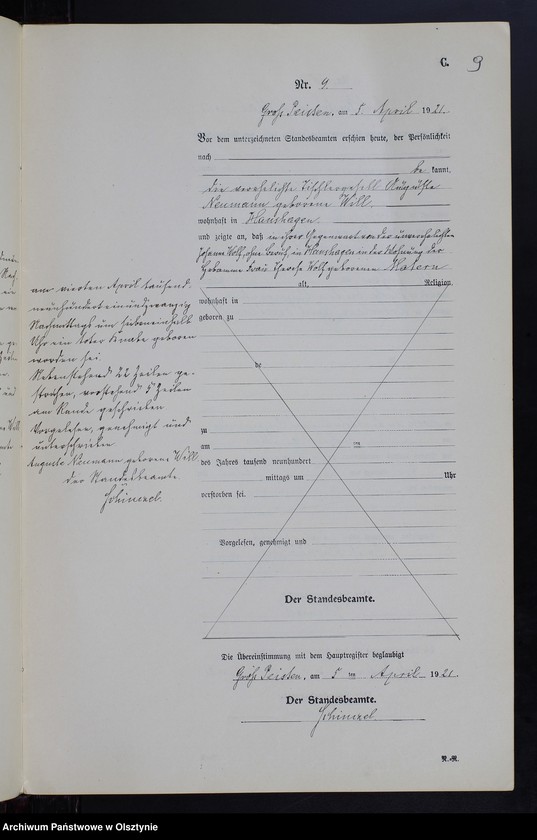 C. 9
Nr. 9
Groß Peisten, am 5 April 1921.
Vor dem unterzeichneten Standesbeamten erschien heute, der Persönlichkeit
nach
be kannt,
die verehelichte Tischlergesell Auguste
Neumann geborene Will
wohnhaft in Hanshagen
und zeigte an, daß in ihrer Gegenwart von der unverehelichten
Johanne Wolf, ohne Beruf, in Hanshagen in der Wohnung der
Hebamme Frau Wolf geborenen Matern
alt, Religion,
wohnhaft in
geboren zu
am vierten April tausend
neunhunderteinundzwanzig
Nachmittags um siebeneinhalb
Uhr ein toter Knabe geboren
worden sei.
Nebenstehend 22 Zeilen ge-
strichen, vorstehend 5 Zeilen
am Rande geschrieben
Vorgelesen, genehmigt und
unterschrieben
Auguste Neumann geborene Will
Der Standesbeamte
Schinzel.
de
zu
am ten
des Jahres tausend neunhundert
mittags um Uhr
verstorben sei.
Vorgelesen, genehmigt und
Der Standesbeamte.
Die Übereinstimmung mit dem Hauptregister beglaubigt
Groß Peisten, am 5 ten April 1921.
Der Standesbeamte.
Schinzel.
R.-R.
Archiwum Państwowe w Olsztynie